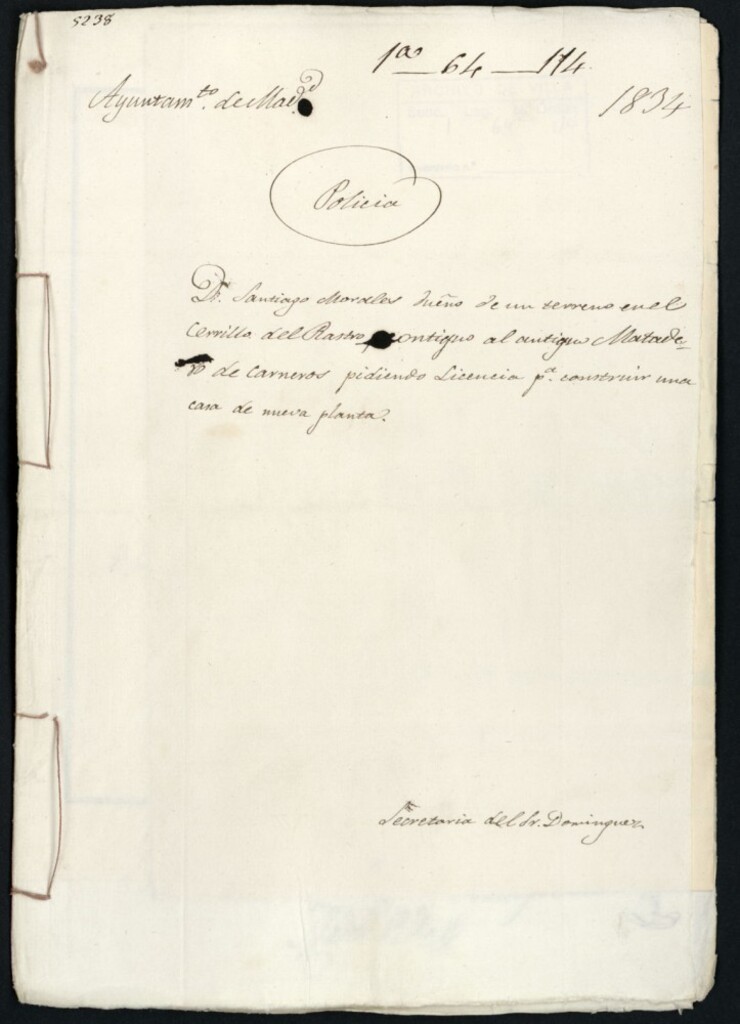 5238
1ª — 64 — 114
Ayuntam.to de Mad.d
1834
Policia
Dn. Santiago Morales dueño de un terreno en el
Cerrillo del Rastro contiguo al antiguo Matade-
ro de Carneros pidiendo Licencia pª. construir una
casa de nueva planta.
Secretaria del Sr. Dominguez